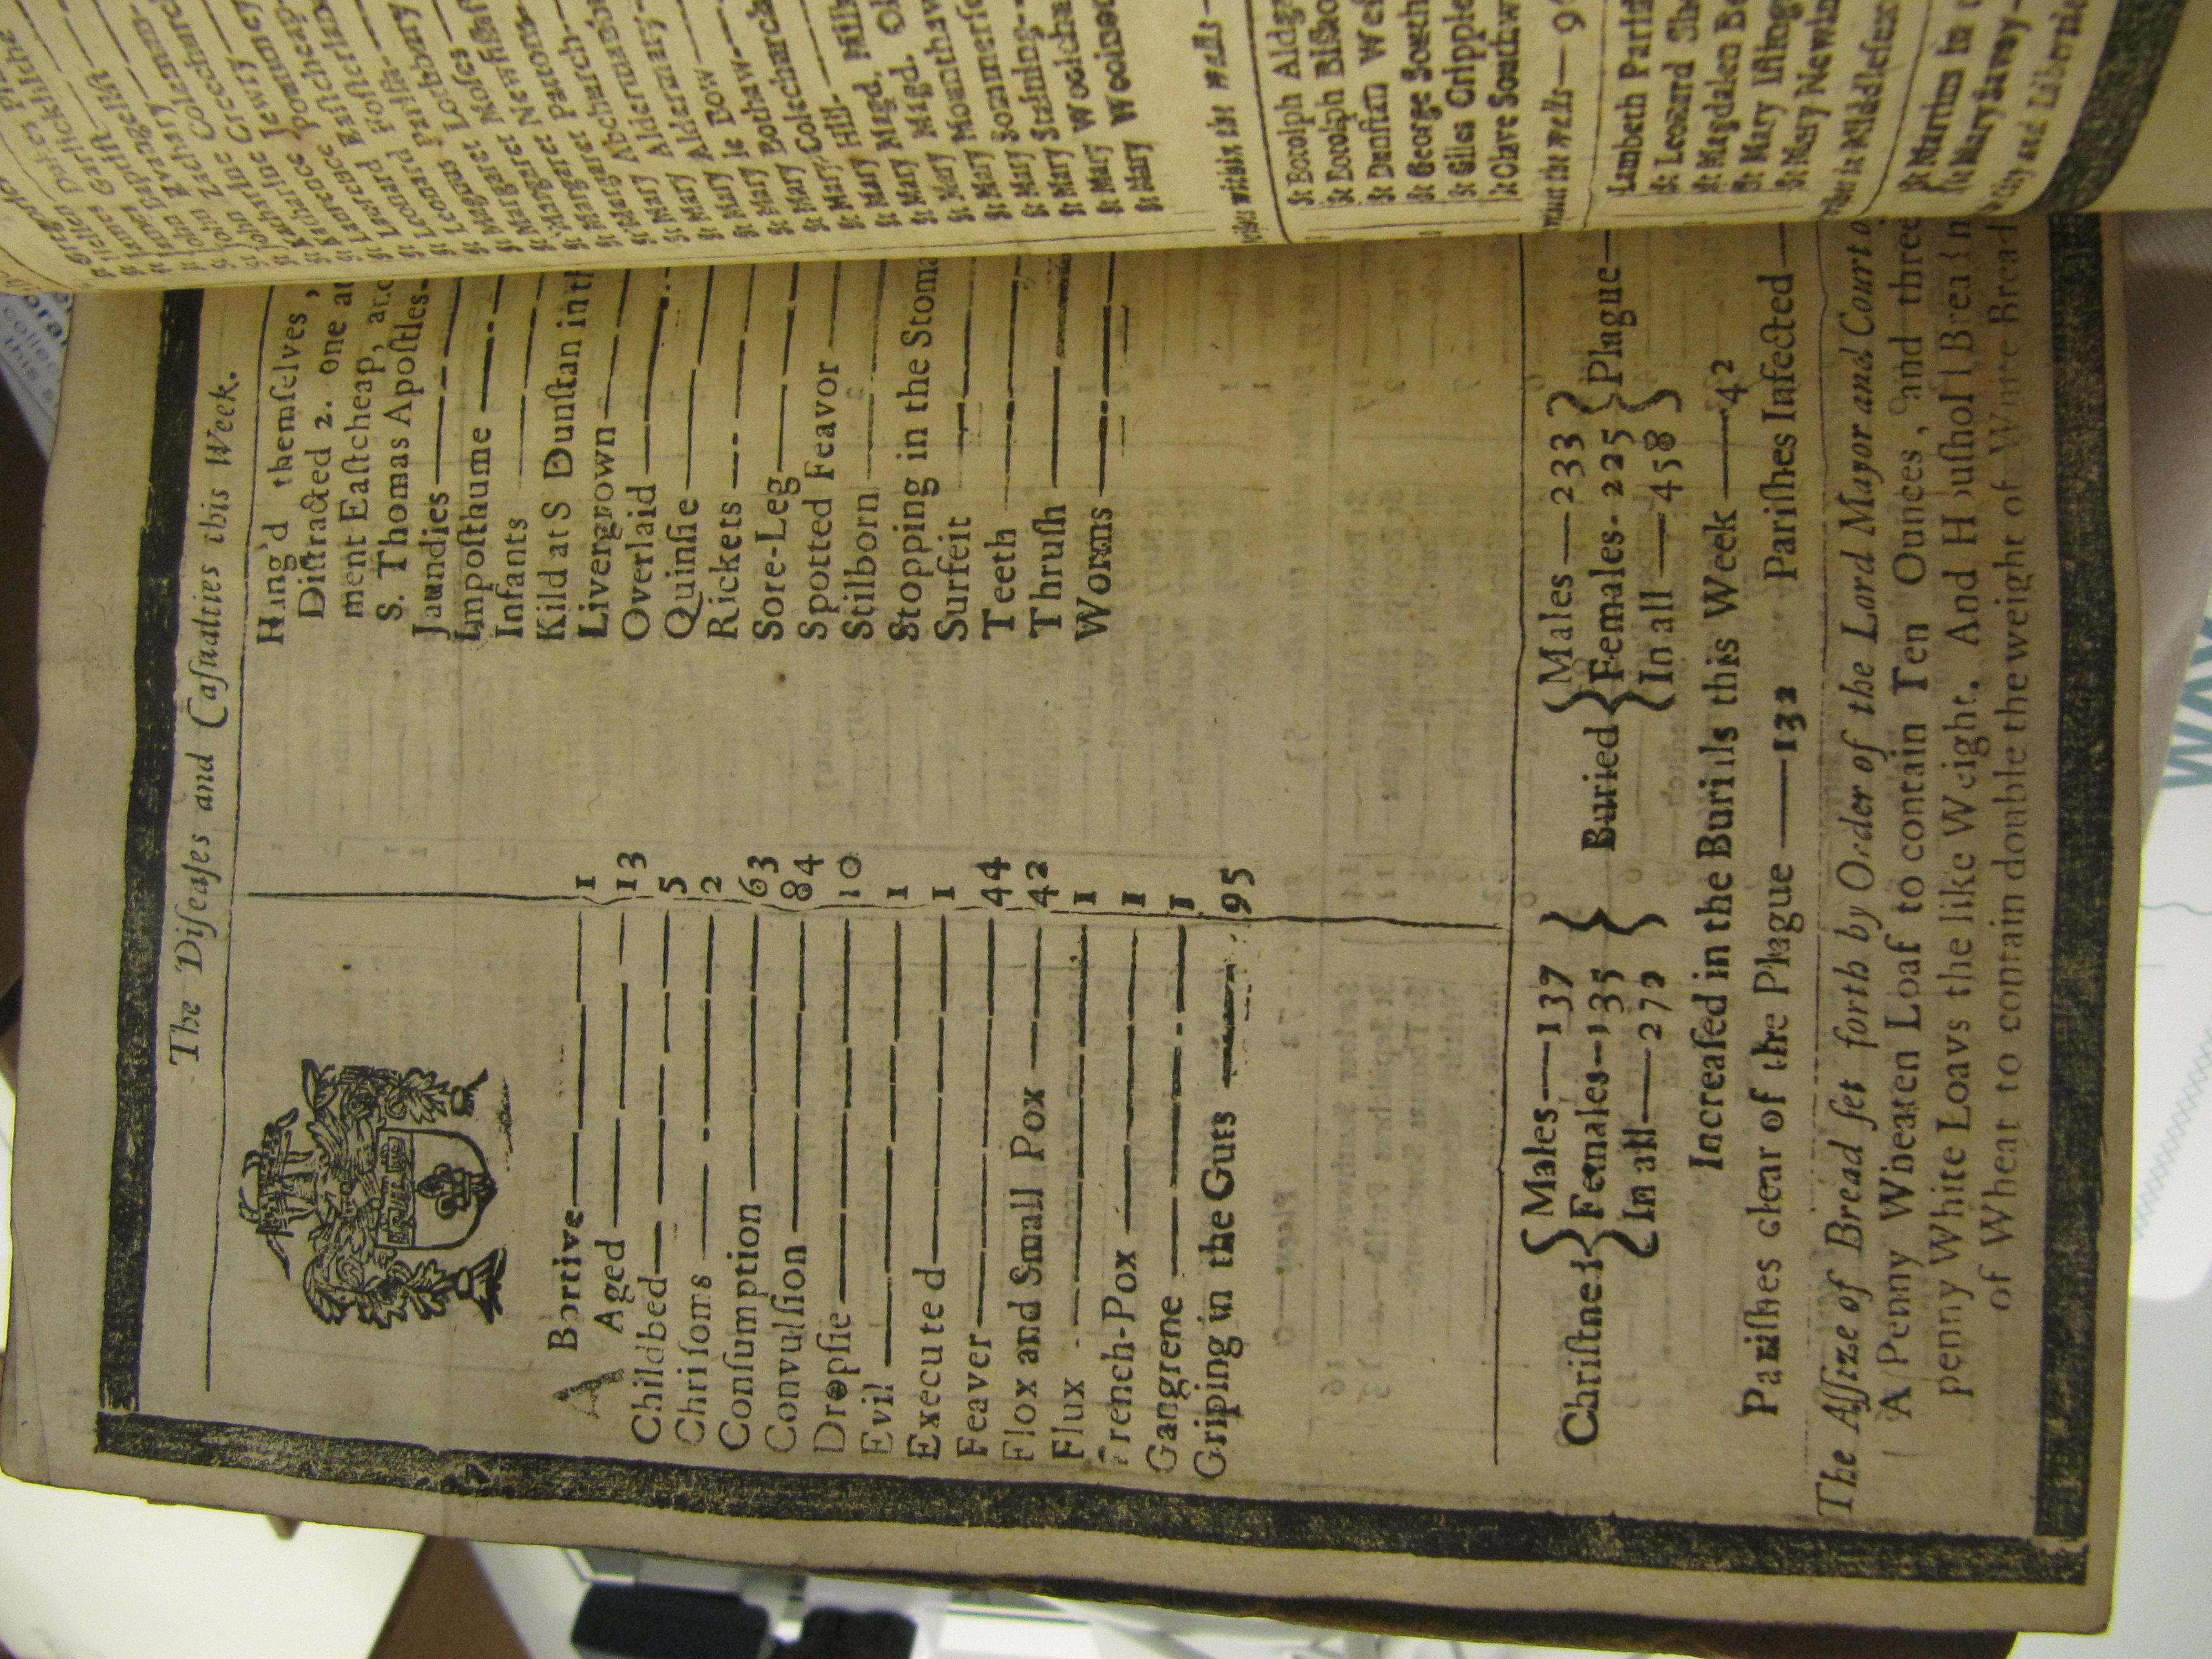 The Diſeaſes and Caſualties this Week.
ABortive 1
Aged 13
Childbed 5
Chriſoms 2
Conſumption 63
Convulſion 84
Dropſie 10
Evil 1
Executed 1
Feaver 44
Flox and Small Pox 42
Flux 1
French-Pox 1
Gangrene 1
Griping in the Guts 95
Hang'd themſelves,
Diſtracted 2. one at
ment Eaſtcheap, and
S. Thomas Apoſtles
Jaundies
Impoſthume
Infants
Kild at S Dunſtan in th
Livergrown
Overlaid
Quinſie
Rickets
Sore-Leg
Spotted Feavor
Stilborn
Stopping in the Stoma
Surfeit
Teeth
Thruſh
Worms
Chriſtned { Males — 137
Females - 135
In all — 272 }
Buried { Males — 233
Females - 225
In all — 458 } Plague —
Increaſed in the Burials this Week — 42
Pariſhes clear of the Plague — 132 Pariſhes Infected —
The Aſſize of Bread ſet forth by Order of the Lord Mayor and Court o
A Penny Wheaten Loaf to contain Ten Ounces, and three
penny White Loavs the like Weight. And Houſhold Bread
of Wheat to contain double the weight of White Bread
St James Garlickhithe
St John Baptiſt
St John Evangeliſt
St John Zachary
St Katharine Coleman
St Katharine Creechurch
St Lawrence Jewry
St Lawrence Pountney
St Leonard Eaſtcheap
St Leonard Foſterlane
St Magnus Pariſh
St Margaret Lothbury
St Margaret Moſes
St Margaret Newfiſh
St Margaret Pattons
St Mary Abchurch
St Mary Aldermanb
St Mary Aldermary
St Mary le Bow
St Mary Bothaw
St Mary Colechurch
St Mary Hill
St Mary Magd. Milk
St Mary Magd. Ol
St Mary Mounthaw
St Mary Sommerſe
St Mary Staining
St Mary Woolchu
St Mary Woolnoo
within the Walls —
St Botolph Aldg
St Botolph Biſho
St Dunſtan Weſ
St George South
St Giles Cripple
St Olave Southw
without the Walls — 9
Lambeth Pariſ
St Leonard Sho
St Magdalen Be
St Mary Iſling
St Mary Newin
in Middleſex
St Martins in
St Mary Savoy
City and Libertie